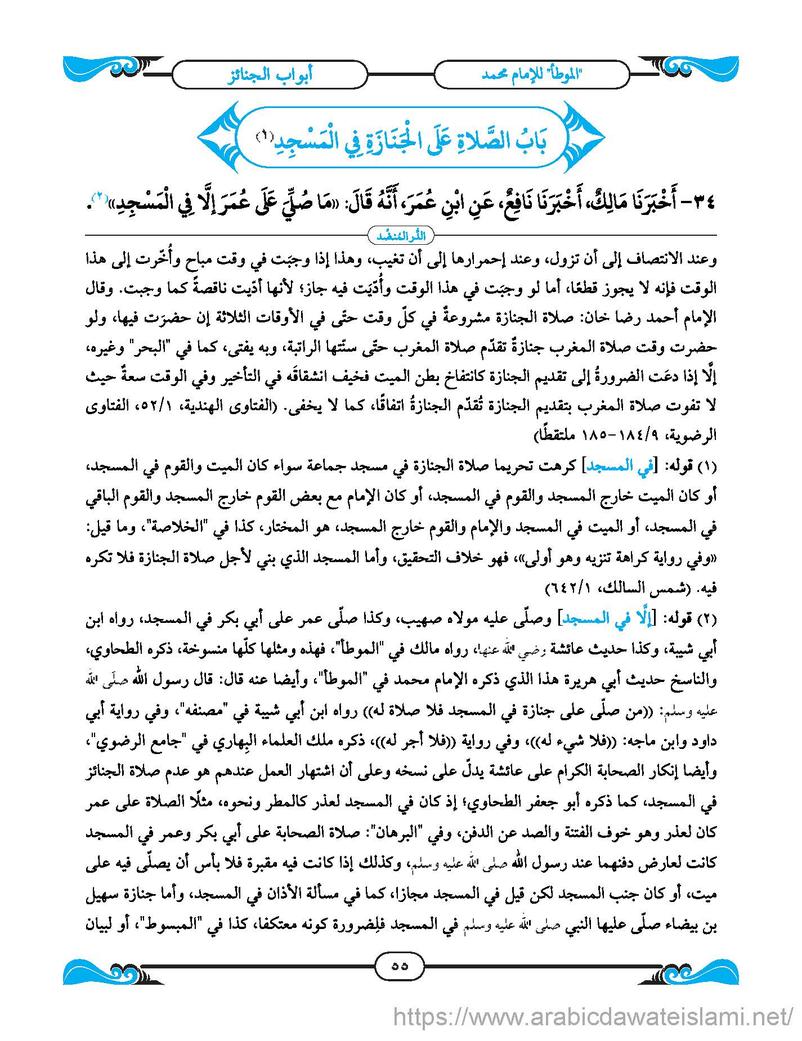 "الموطأ" للإمام محمد
أبواب الجنائز
بَابُ الصَّلاةِ عَلَى الْجَنَازَةِ فِي الْمَسْجِدِ(١)
٣٤- أَخْبَرَنَا مَالِكٌ، أَخْبَرَنَا نَافِعٌ، عَنِ ابْنِ عُمَرَ، أَنَّهُ قَالَ: «مَا صُلِّيَ عَلَى عُمَرَ إلَّا فِي الْمَسْجِدِ»(٢).
الدُّر المُنضَّد
وعند الانتصاف إلى أن تزول، وعند إحمرارها إلى أن تغيب، وهذا إذا وجبَت في وقت مباح وأُخّرت إلى هذا
الوقت فإنه لا يجوز قطعًا، أما لو وجبَت في هذا الوقت وأُدّيَت فيه جاز؛ لأنها أدّيت ناقصةً كما وجبت. وقال
الإمام أحمد رضا خان: صلاة الجنازة مشروعةٌ في كلّ وقت حتّى في الأوقات الثلاثة إن حضرَت فيها، ولو
حضرت وقت صلاة المغرب جنازةٌ تقدّم صلاة المغرب حتّى سنّتها الراتبة، وبه يفتى، كما في "البحر" وغيره،
إلّا إذا دعَت الضرورةُ إلى تقديم الجنازة كانتفاخ بطن الميت فخيف انشقاقَه في التأخير وفي الوقت سعةٌ حيث
لا تفوت صلاة المغرب بتقديم الجنازة تُقدّم الجنازةُ اتفاقًا، كما لا يخفى. (الفتاوى الهندية، ٥٢/١، الفتاوى
الرضوية، ١٨٤/٩-١٨٥ ملتقطًا)
(١) قوله: [في المسجد] كرهت تحريما صلاة الجنازة في مسجد جماعة سواء كان الميت والقوم في المسجد،
أو كان الميت خارج المسجد والقوم في المسجد، أو كان الإمام مع بعض القوم خارج المسجد والقوم الباقي
في المسجد، أو الميت في المسجد والإمام والقوم خارج المسجد، هو المختار، كذا في "الخلاصة"، وما قيل:
«وفي رواية كراهة تنزيه وهو أولى»، فهو خلاف التحقيق، وأما المسجد الذي بني لأجل صلاة الجنازة فلا تكره
فيه. (شمس السالك، ٦٤٢/١)
(٢) قوله: [إلَّا في المسجد] وصلّى عليه مولاه صهيب، وكذا صلّى عمر على أبي بكر في المسجد، رواه ابن
أبي شيبة، وكذا حديث عائشة رضي الله عنها، رواه مالك في "الموطأ"، فهذه ومثلها كلّها منسوخة، ذكره الطحاوي،
والناسخ حديث أبي هريرة هذا الذي ذكره الإمام محمد في "الموطأ"، وأيضا عنه قال: قال رسول الله صلّى الله
عليه وسلم: ((من صلّى على جنازة في المسجد فلا صلاة له)) رواه ابن أبي شيبة في "مصنفه"، وفي رواية أبي
داود وابن ماجه: ((فلا شيء له))، وفي رواية ((فلا أجر له))، ذكره ملك العلماء البِهاري في "جامع الرضوي"،
وأيضا إنكار الصحابة الكرام على عائشة يدلّ على نسخه وعلى أن اشتهار العمل عندهم هو عدم صلاة الجنائز
في المسجد، كما ذكره أبو جعفر الطحاوي؛ إذ كان في المسجد لعذر كالمطر ونحوه، مثلًا الصلاة على عمر
كان لعذر وهو خوف الفتنة والصد عن الدفن، وفي "البرهان": صلاة الصحابة على أبي بكر وعمر في المسجد
كانت لعارض دفنهما عند رسول الله صلى الله عليه وسلم، وكذلك إذا كانت فيه مقبرة فلا بأس أن يصلّى فيه على
ميت، أو كان جنب المسجد لكن قيل في المسجد مجازا، كما في مسألة الأذان في المسجد، وأما جنازة سهيل
بن بيضاء صلّى عليها النبي صلى الله عليه وسلم في المسجد فلِضرورة كونه معتكفا، كذا في "المبسوط"، أو لبيان
٥٥
https://www.arabicdawateislami.net/